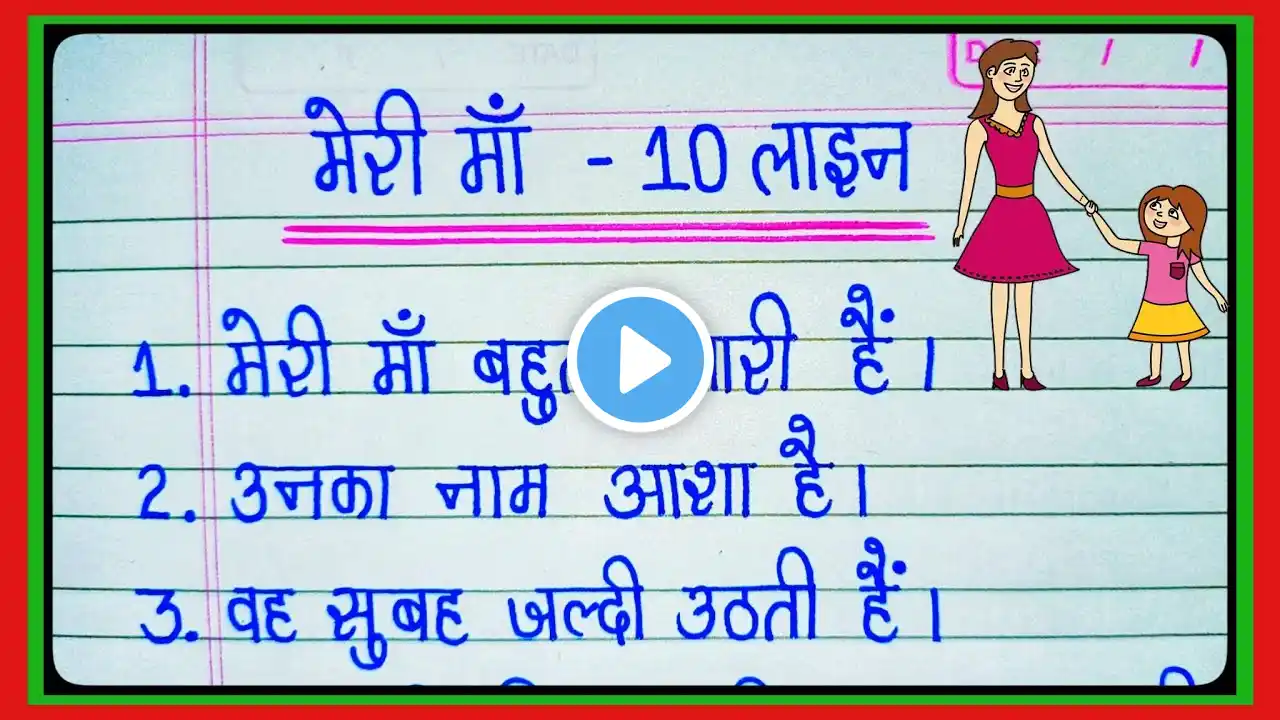 मेरी माँ - 10 लाइन
1. मेरी माँ बहुत हैं।
2. उनका नाम आशा है।
3. वह सुबह जल्दी उठती हैं।